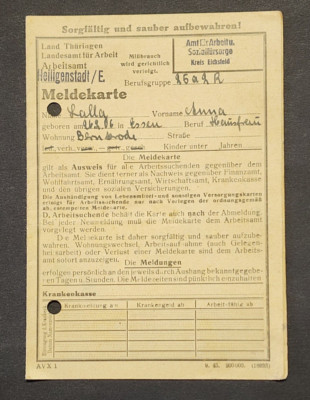 Sorgfältig und sauber aufbewahren!
Land Thüringen
Landesamt für Arbeit
Arbeitsamt
Heiligenstadt/E.
Mißbrauch
wird gerichtlich
verfolgt.
Amt für Arbeit u.
Sozialfürsorge
Kreis Eichsfeld
Berufsgruppe 26a2R
Meldekarte
Name Lalla Vorname Anna
geboren am in Essen Beruf Hausfrau
Wohnung Bernterode Straße
verh. Kinder unter Jahren
Die Meldekarte
gilt als Ausweis für alle Arbeitsuchenden gegenüber dem
Arbeitsamt. Sie dient ferner als Nachweis gegenüber Finanzamt,
Wohlfahrtsamt, Ernährungsamt, Wirtschaftsamt, Krankenkasse
und den übrigen sozialen Versicherungen.
Die Aushändigung von Lebensmittel- und sonstigen Versorgungskarten
erfolgt für Arbeitsuchende nur nach Vorlegen der ordnungsgemäß
ab, estempelten Meldekarte.
D. Arbeitsuchende behält die Karte auch nach der Abmeldung.
Bei jeder Neumeldung muß die Meldekarte dem Arbeitsamt
vorgelegt werden
Die Meldekarte ist daher sorgfältig und sauber aufzube-
wahren. Wohnungswechsel, Arbeitsaufnahme (auch Gelegen-
heitsarbeit) oder Verlust einer Meldekarte sind dem Arbeits-
amt sofort anzuzeigen.
Die Meldungen
erfolgen persönlich an den jeweils durch Aushang bekanntgegebe-
nen Tagen u. Stunden. Die Meldezeiten sind pünktlich einzuhalten
Krankenkasse
Krankmeldung am Krankengeld ab Arbeitsfähig ab
AVX 1